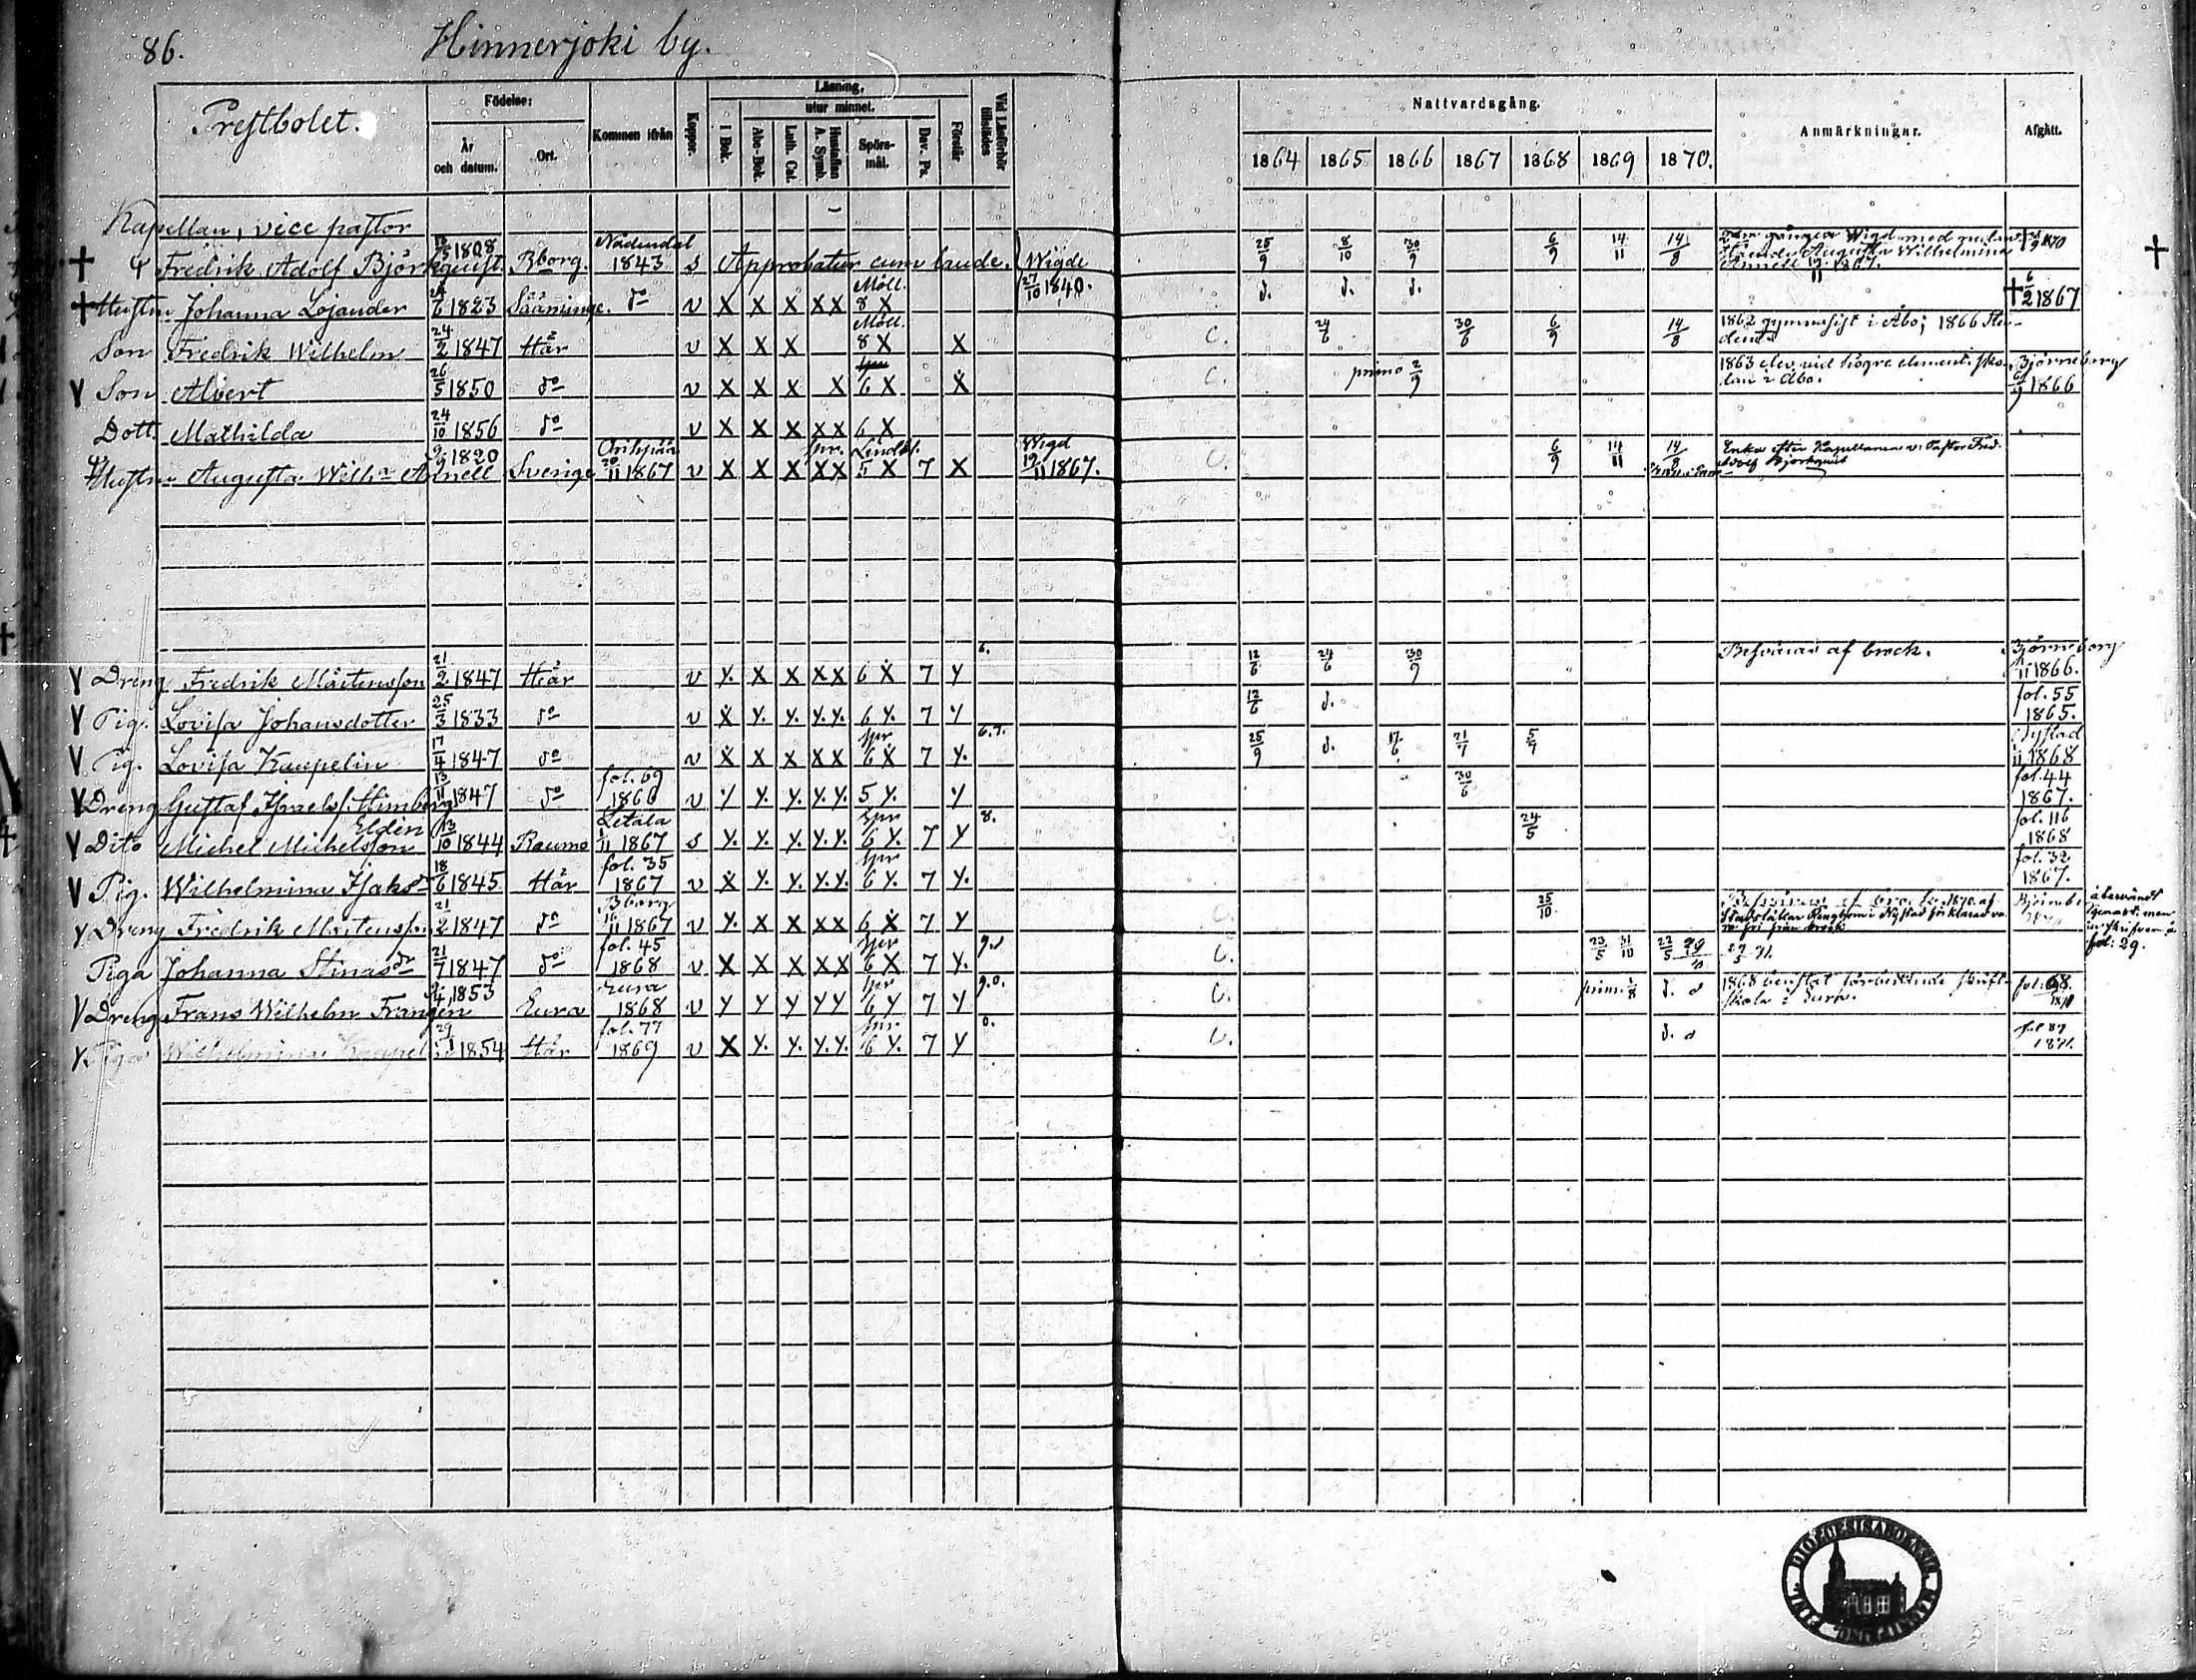 86. Hinnerjoki by.
Prestbolet. Födelse: År och datum. Ort. Kommen ifrån Koppor. Läsning, utur minnet. I Bok. Abc-Bok. Luth. Cat. Hustaflan A. Symb. Spörsmål. Dav. Ps. Förstår Vid Läsförhör tillstädes Nattvardsgång. 1864 1865 1866 1867 1868 1869 1870. Anmärkningar. Afgått.
Kapellan, vice pastor
Nådendal
† Fredrik Adolf Björkquist 1808 Bborg. 1843 s Approbatur cum laude. Wigde 27/10 1840. 25/9 8/10 30/9 6/9 14/11 14/8 Wigd med Augusta Wilhelmina 19/11 1867. 1870 †
Möll.
† Hustru Johanna Lojander 1823 Sääminge. do v X X X XX 8 X d. d. d. † 6/2 1867
Möll.
Son Fredrik Wilhelm 24/2 1847 Här v X X X 8 X X C. 24/6 30/6 6/9 14/8 1862 gymnasist i Åbo; 1866
V Son Albert 26/5 1850 do v X X X X 6 X X C. primo 2/9 1863 elev vid högre element. skolan i Åbo. Björneborg 1866
Dott. Mathilda 24/10 1856 do v X X X XX 6 X
Hustru Augusta Wilh:a Arnell 1820 Sverige Oripää 20/11 1867 v X X X XX Lindbl. 5 X 7 X Wigd 19/11 1867. C. 6/9 14/11 14/8 Enka efter Kapellanen v. Pastor Fred. Adolf Björkquist
V Dreng Fredrik Mårtensson 21/2 1847 Här v Y. X X XX 6 X 7 Y 6. 12/6 24/6 30/9 Besväras af bråck. Björneborg 1866.
V Pig. Lovisa Johansdotter 25/3 1833 do v X Y. Y. Y.Y. 6 Y. 7 Y 12/6 d. fol. 55 1865.
V Pig. Lovisa Kaupelin 17/4 1847 do v X X X XX Spr 6 X 7 Y. 6.7. 25/9 d. 17/6 21/7 5/7 Nystad 1868
V Dreng Gustaf Israelss. Himberg 13/11 1847 do fol. 69 1866 v Y Y. Y. Y.Y. 5 Y. Y 30/6 fol. 44 1867.
V Dito Michel Michelsson Eldén 13/10 1844 Raumo Letala 1867 s Y. Y. Y. Y.Y. Spr 6 Y 7 Y 8. 24/5 fol. 116 1868
V Pig. Wilhelmina Isaksdr 18/6 1845 Här fol. 35 1867 v X Y. Y. Y.Y. Spr 6 Y. 7 Y. fol. 32 1867.
V Dreng Fredrik Mårtensson 21/2 1847 do Bborg 16/11 1867 v Y. X X XX 6 X 7 Y C. 25/10 Besväras af bråck; 1870 af Stadsläkar i Nystad förklarad fri från bråck. Björneb. återvändt men inskrifven å fol: 29.
Piga Johanna Stinasdr 21/7 1847 do fol. 45 1868 v X X X XX Spr 6 X 7 Y. C. 23/5 31/10 22/5
V Dreng Frans Wilhelm Frangén 1853 Eura Eura 1868 v Y Y Y YY Spr 6 Y 7 Y 9.0. C. prim. d. 1868 bevistat förberedande skriftskola i Eura. fol: 68.
V Piga Wilhelmina Kaupelin 1854 Här fol. 77 1869 v X Y. Y. Y.Y. Spr 6 Y. 7 Y 0. C. d. fol 89 1871.